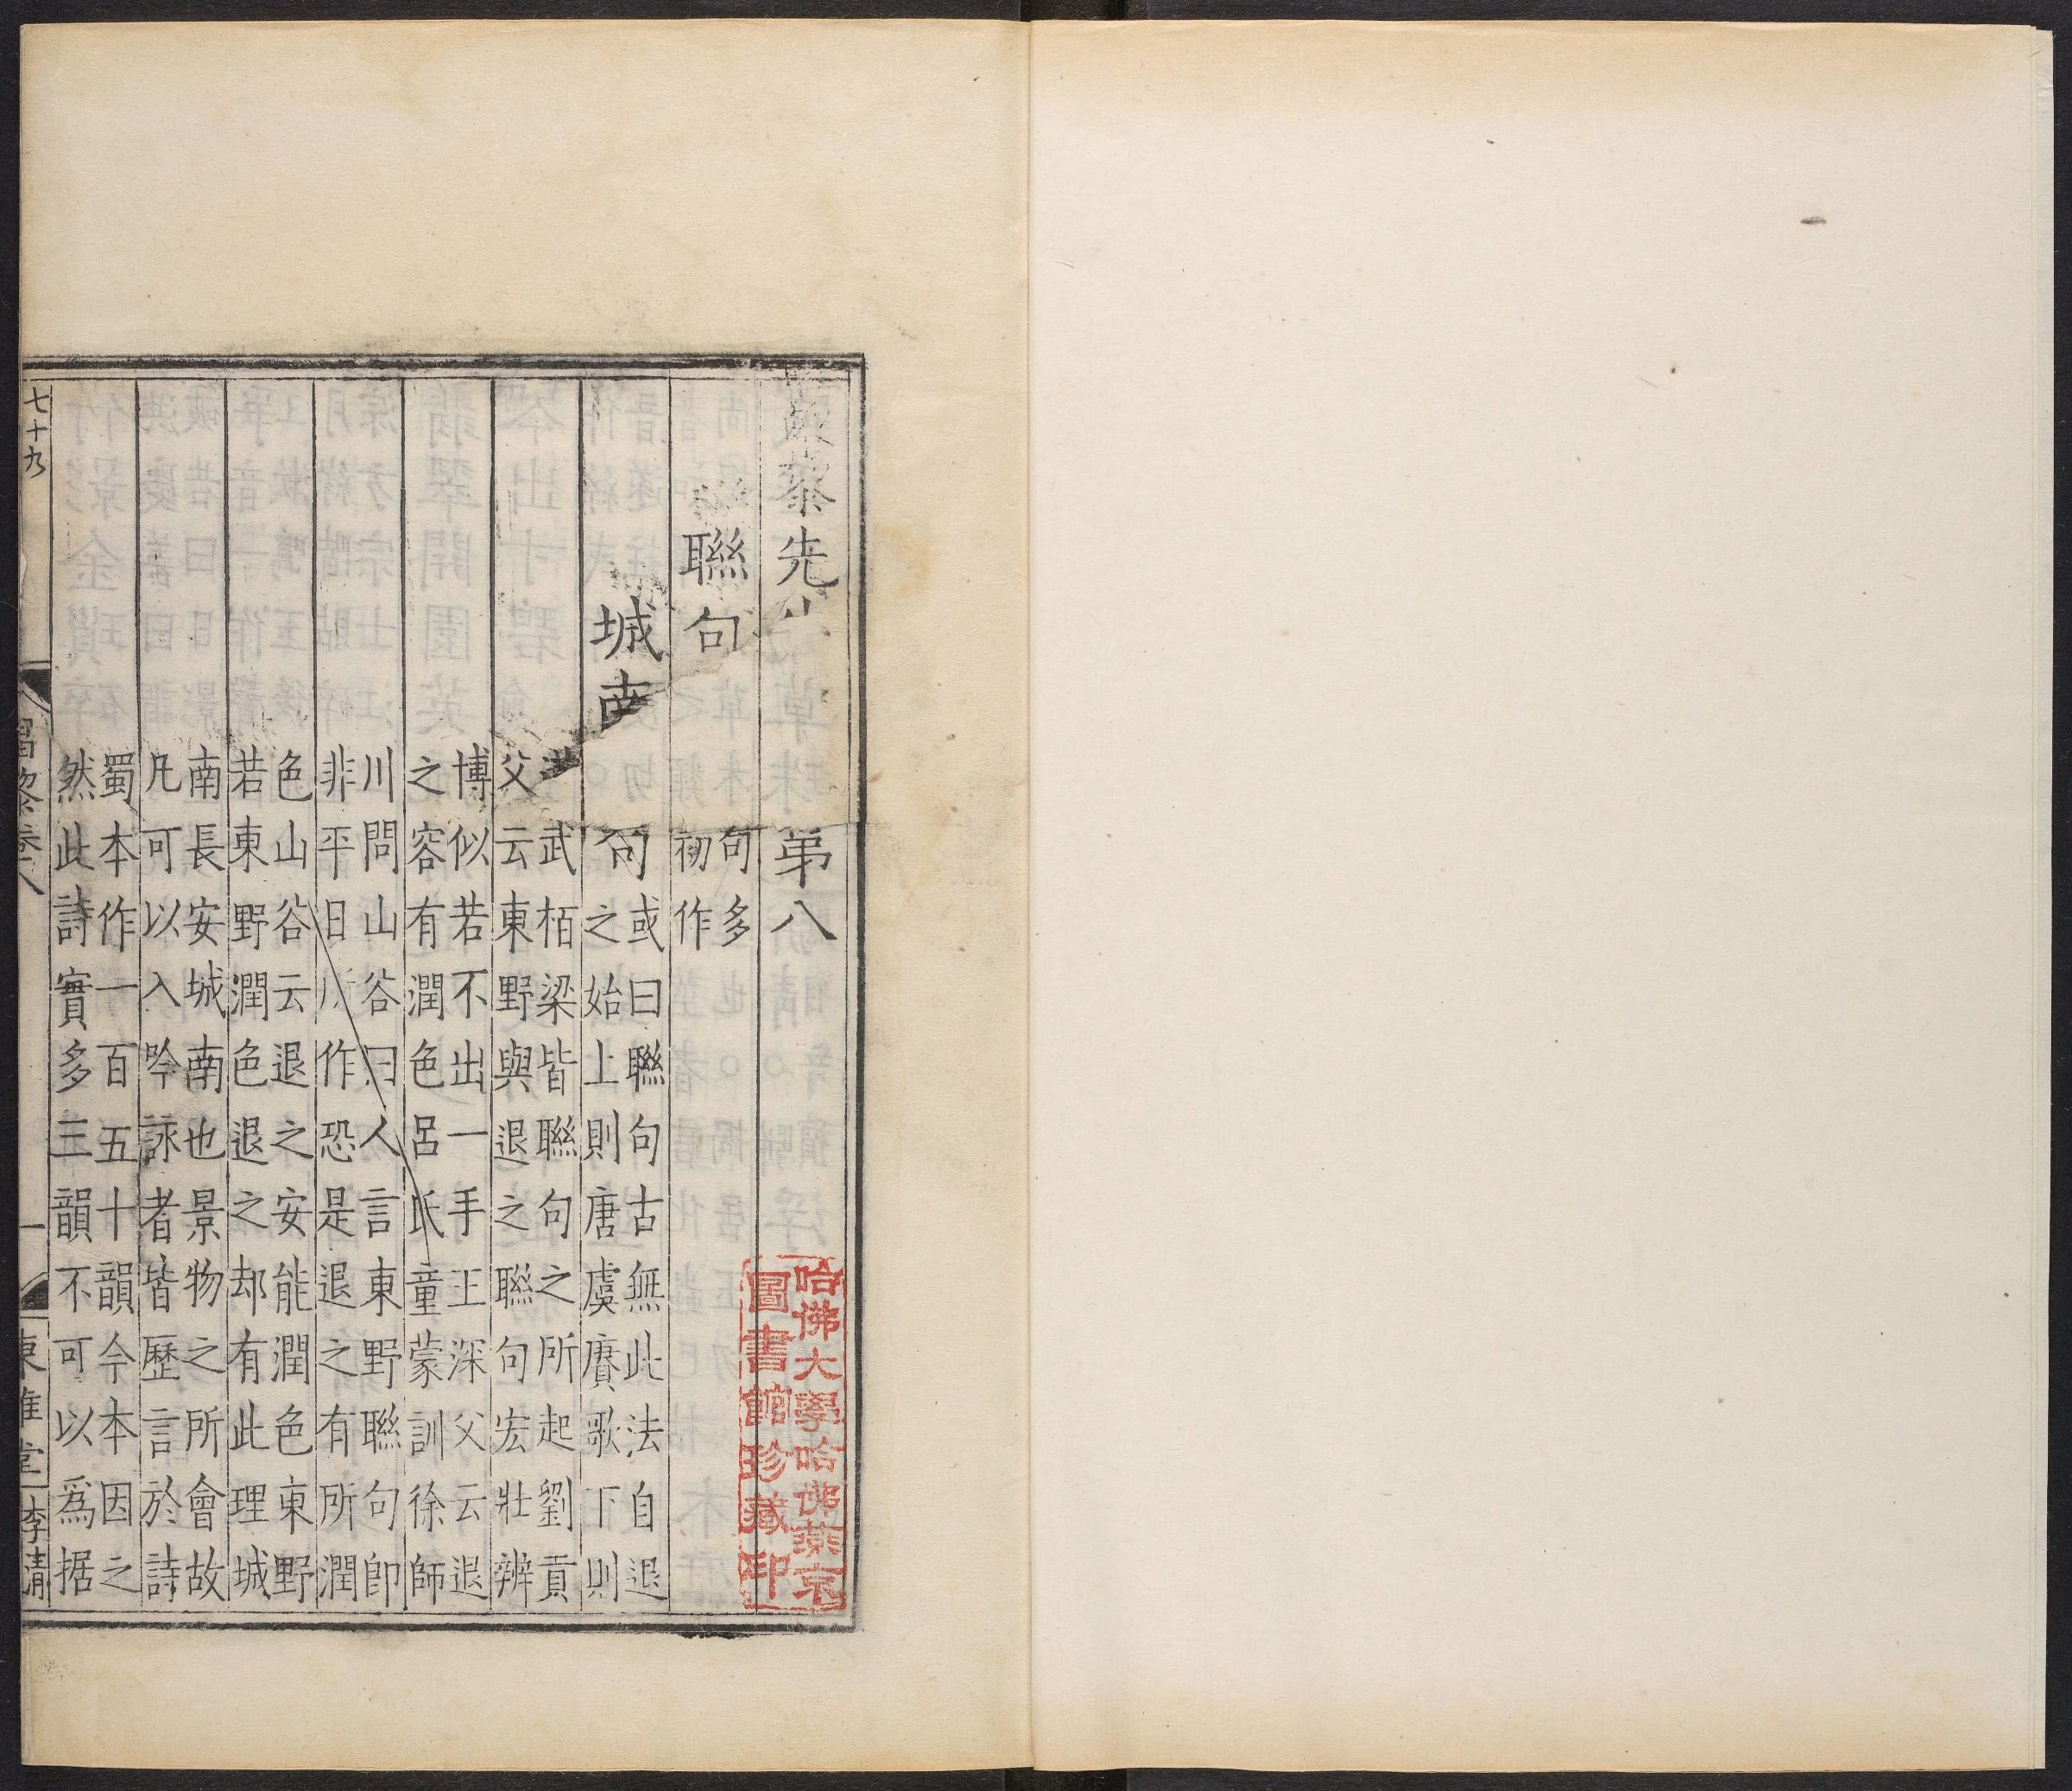 黎先
第八
聯句
句多
初作
城南
句或曰聯句古無此法自退
之始上則唐虞賡歌下則
武栢梁皆聯句之所起劉貢
父云東野與退之聯句宏壯辨
博似若不出一手王深父云退
之容有潤色呂氏童蒙訓徐師
川問山谷曰人言東野聯句卽
非平日所作恐是退之有所潤
色山谷云退之安能潤色東野
若東野潤色退之却有此理城
南長安城南也景物之所會故
凡可以入吟詠者皆歷言於詩
蜀本作一百五十韻今本因之
然此詩實多三韻不可以爲据
七十九
昌黎卷八
一
東雅堂
李清
哈佛大學哈佛燕京
圖書館珍藏印